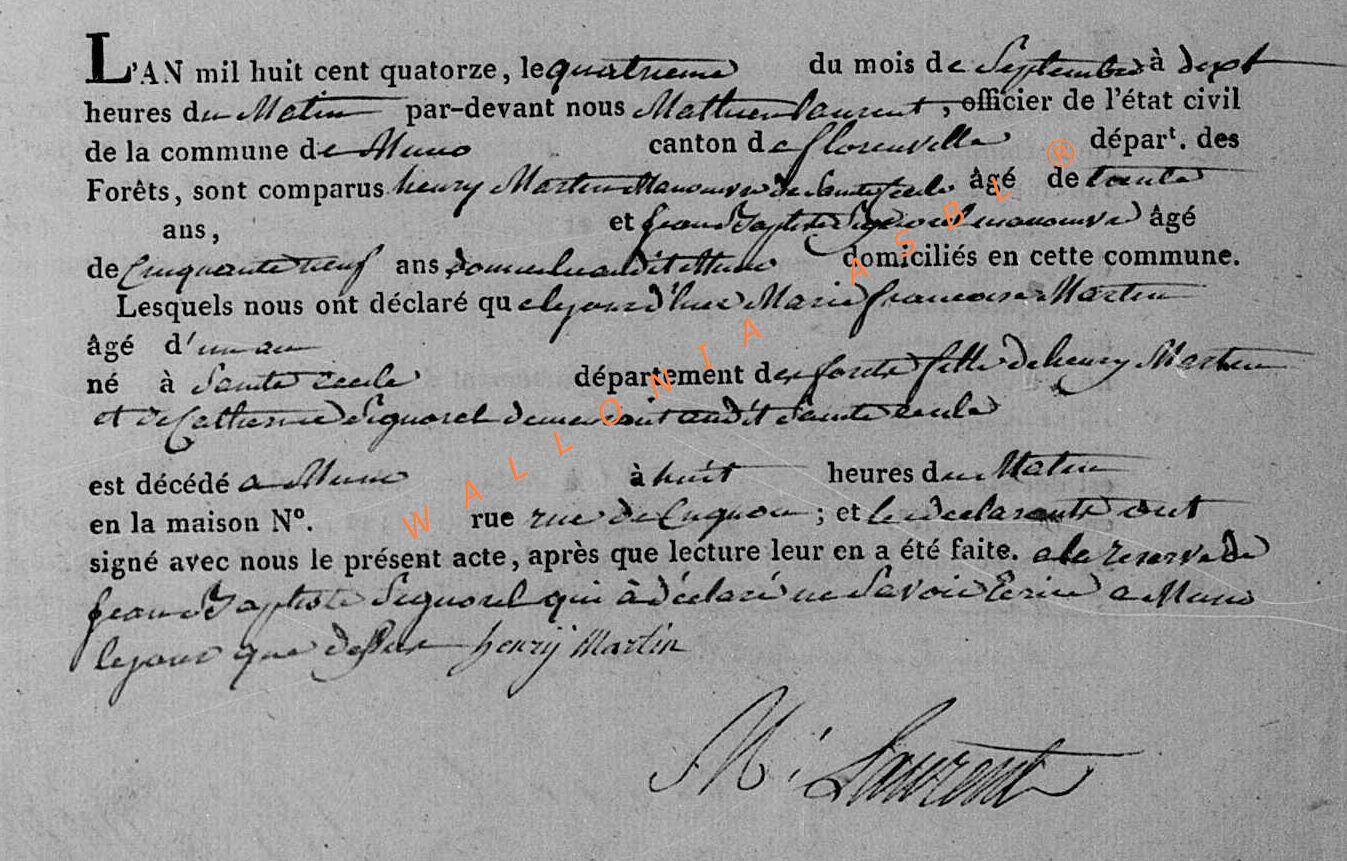 L'AN mil huit cent quatorze, le quatrieme du mois de Septembre à Sept
heures du Matin par-devant nous Mathieu laurent, officier de l'état civil
de la commune de Muno canton de florenville départ. des
Forêts, sont comparus henry Martin Manouvre de Sainte Cecile âgé de trente
ans, et jean Baptiste Signorel manouvre âgé
de Cinquante neuf ans domicilie audit Muno domiciliés en cette commune.
Lesquels nous ont déclaré que lejourd'hui Marie francoise Martin
âgé d'un an
né à Sainte cecile département des forets fille de henry Martin
et de Catherine Signorel demeurant audit Sainte cecile
est décédé a Muno à huit heures du Matin
en la maison N°. rue rue de Cugnon ; et les declarants ont
signé avec nous le présent acte, après que lecture leur en a été faite. a la reserve de
jean Baptiste Signorel qui à déclaré ne Savoir Ecrire a Muno
lejour que dessus henrÿ Martin
M. Laurent
WALLONIA ASBL ®